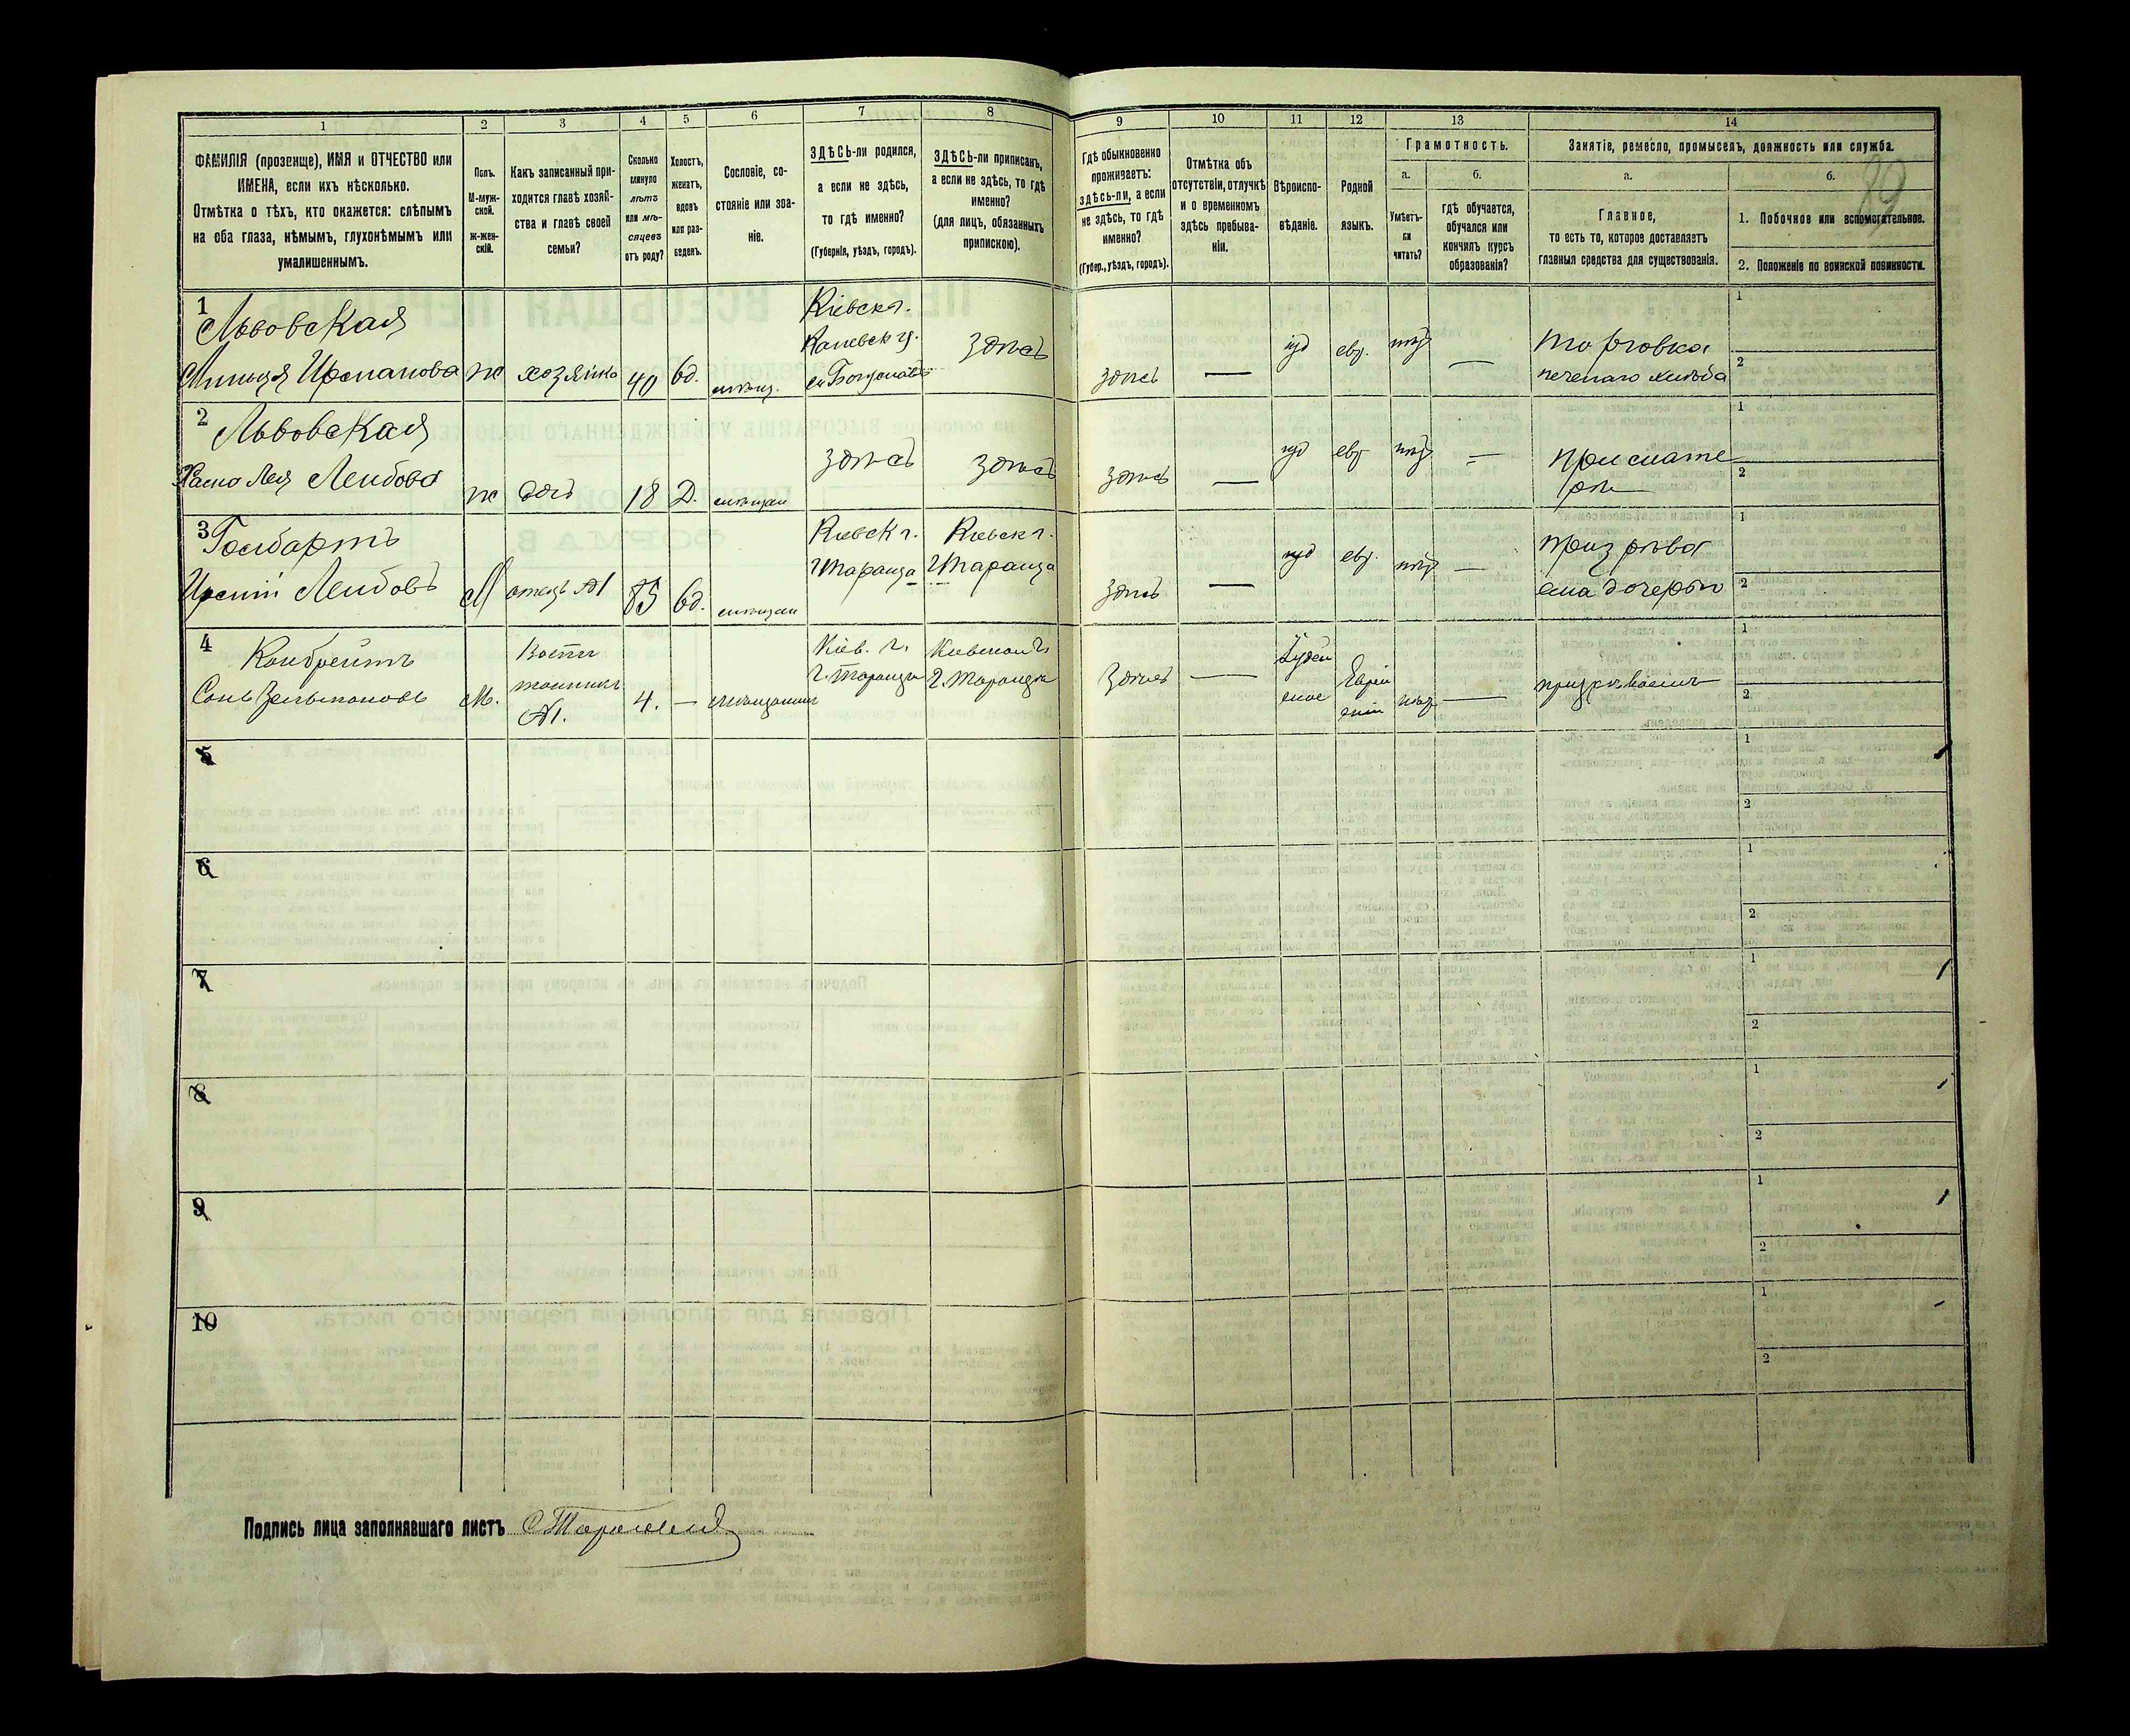 1 2 3 4 5 6 7 8 9 10 11 12 13 14
ФАМИЛІЯ (прозвище), ИМЯ и ОТЧЕСТВО или
ИМЕНА, если ихъ нѣсколько.
Отмѣтка о тѣхъ, кто окажется: слѣпымъ
на оба глаза, нѣмымъ, глухонѣмымъ или
умалишеннымъ.
Полъ.
М-муж-
ской.
ж-жен-
скій.
Какъ записанный при-
ходится главѣ хозяй-
ства и главѣ своей
семьи?
Сколько
минуло
лѣтъ
или мѣ-
сяцевъ
отъ роду?
Холостъ,
женатъ,
вдовъ
или раз-
веденъ.
Сословіе, со-
стояніе или зва-
ніе.
ЗДѢСЬ-ли родился,
а если не здѣсь,
то гдѣ именно?
(Губернія, уѣздъ, городъ).
ЗДѢСЬ-ли приписанъ,
а если не здѣсь, то гдѣ
именно?
(для лицъ, обязанныхъ
припискою).
Гдѣ обыкновенно
проживаетъ:
здѣсь-ли, а если
не здѣсь, то гдѣ
именно?
(Губер., уѣздъ, городъ).
Отмѣтка объ
отсутствіи, отлучкѣ
и о временномъ
здѣсь пребыва-
ніи.
Вѣроиспо-
вѣданіе.
Родной
языкъ.
Грамотность.
а.
Умѣетъ-
ли
читать?
б.
гдѣ обучается,
обучался или
кончилъ курсъ
образованія?
Занятіе, ремесло, промыселъ, должность или служба.
а.
Главное,
то есть то, которое доставляетъ
главныя средства для существованія.
б.
1. Побочное или вспомогательное.
2. Положеніе по воинской повинности.
1
Львовская
ж хозяйка 40 вд.
Кіевск г.
Каневск у.
здѣсь
здѣсь — іуд евр. нѣтъ —
торговка
печенаго хлѣба
1
2
2
Львовская
Лея Лейбова
ж дочь 18 Д. мѣщан
здѣсь
здѣсь
здѣсь — іуд евр нѣтъ —
при мате
ри
1
2
3
Лейбовъ
М отецъ №1 85 вд. мѣщан
Кіевск г.
г Тараща
Кіевск г.
г Тараща
здѣсь — іуд евр. нѣтъ —
призрѣва
ема дочерью
1
2
4
М.
Воспи
танникъ
№1.
4. — мѣщанинъ
Кіев. г.
г. Тараща
Кіевской г.
г. Тараща
Здѣсь —
Іудей
ское
Еврей
скій
нѣтъ —
1
2
5 1 2
6 1 2
7 1 2
8 1 2
9 1 2
10 1 2
Подпись лица заполнявшаго листъ